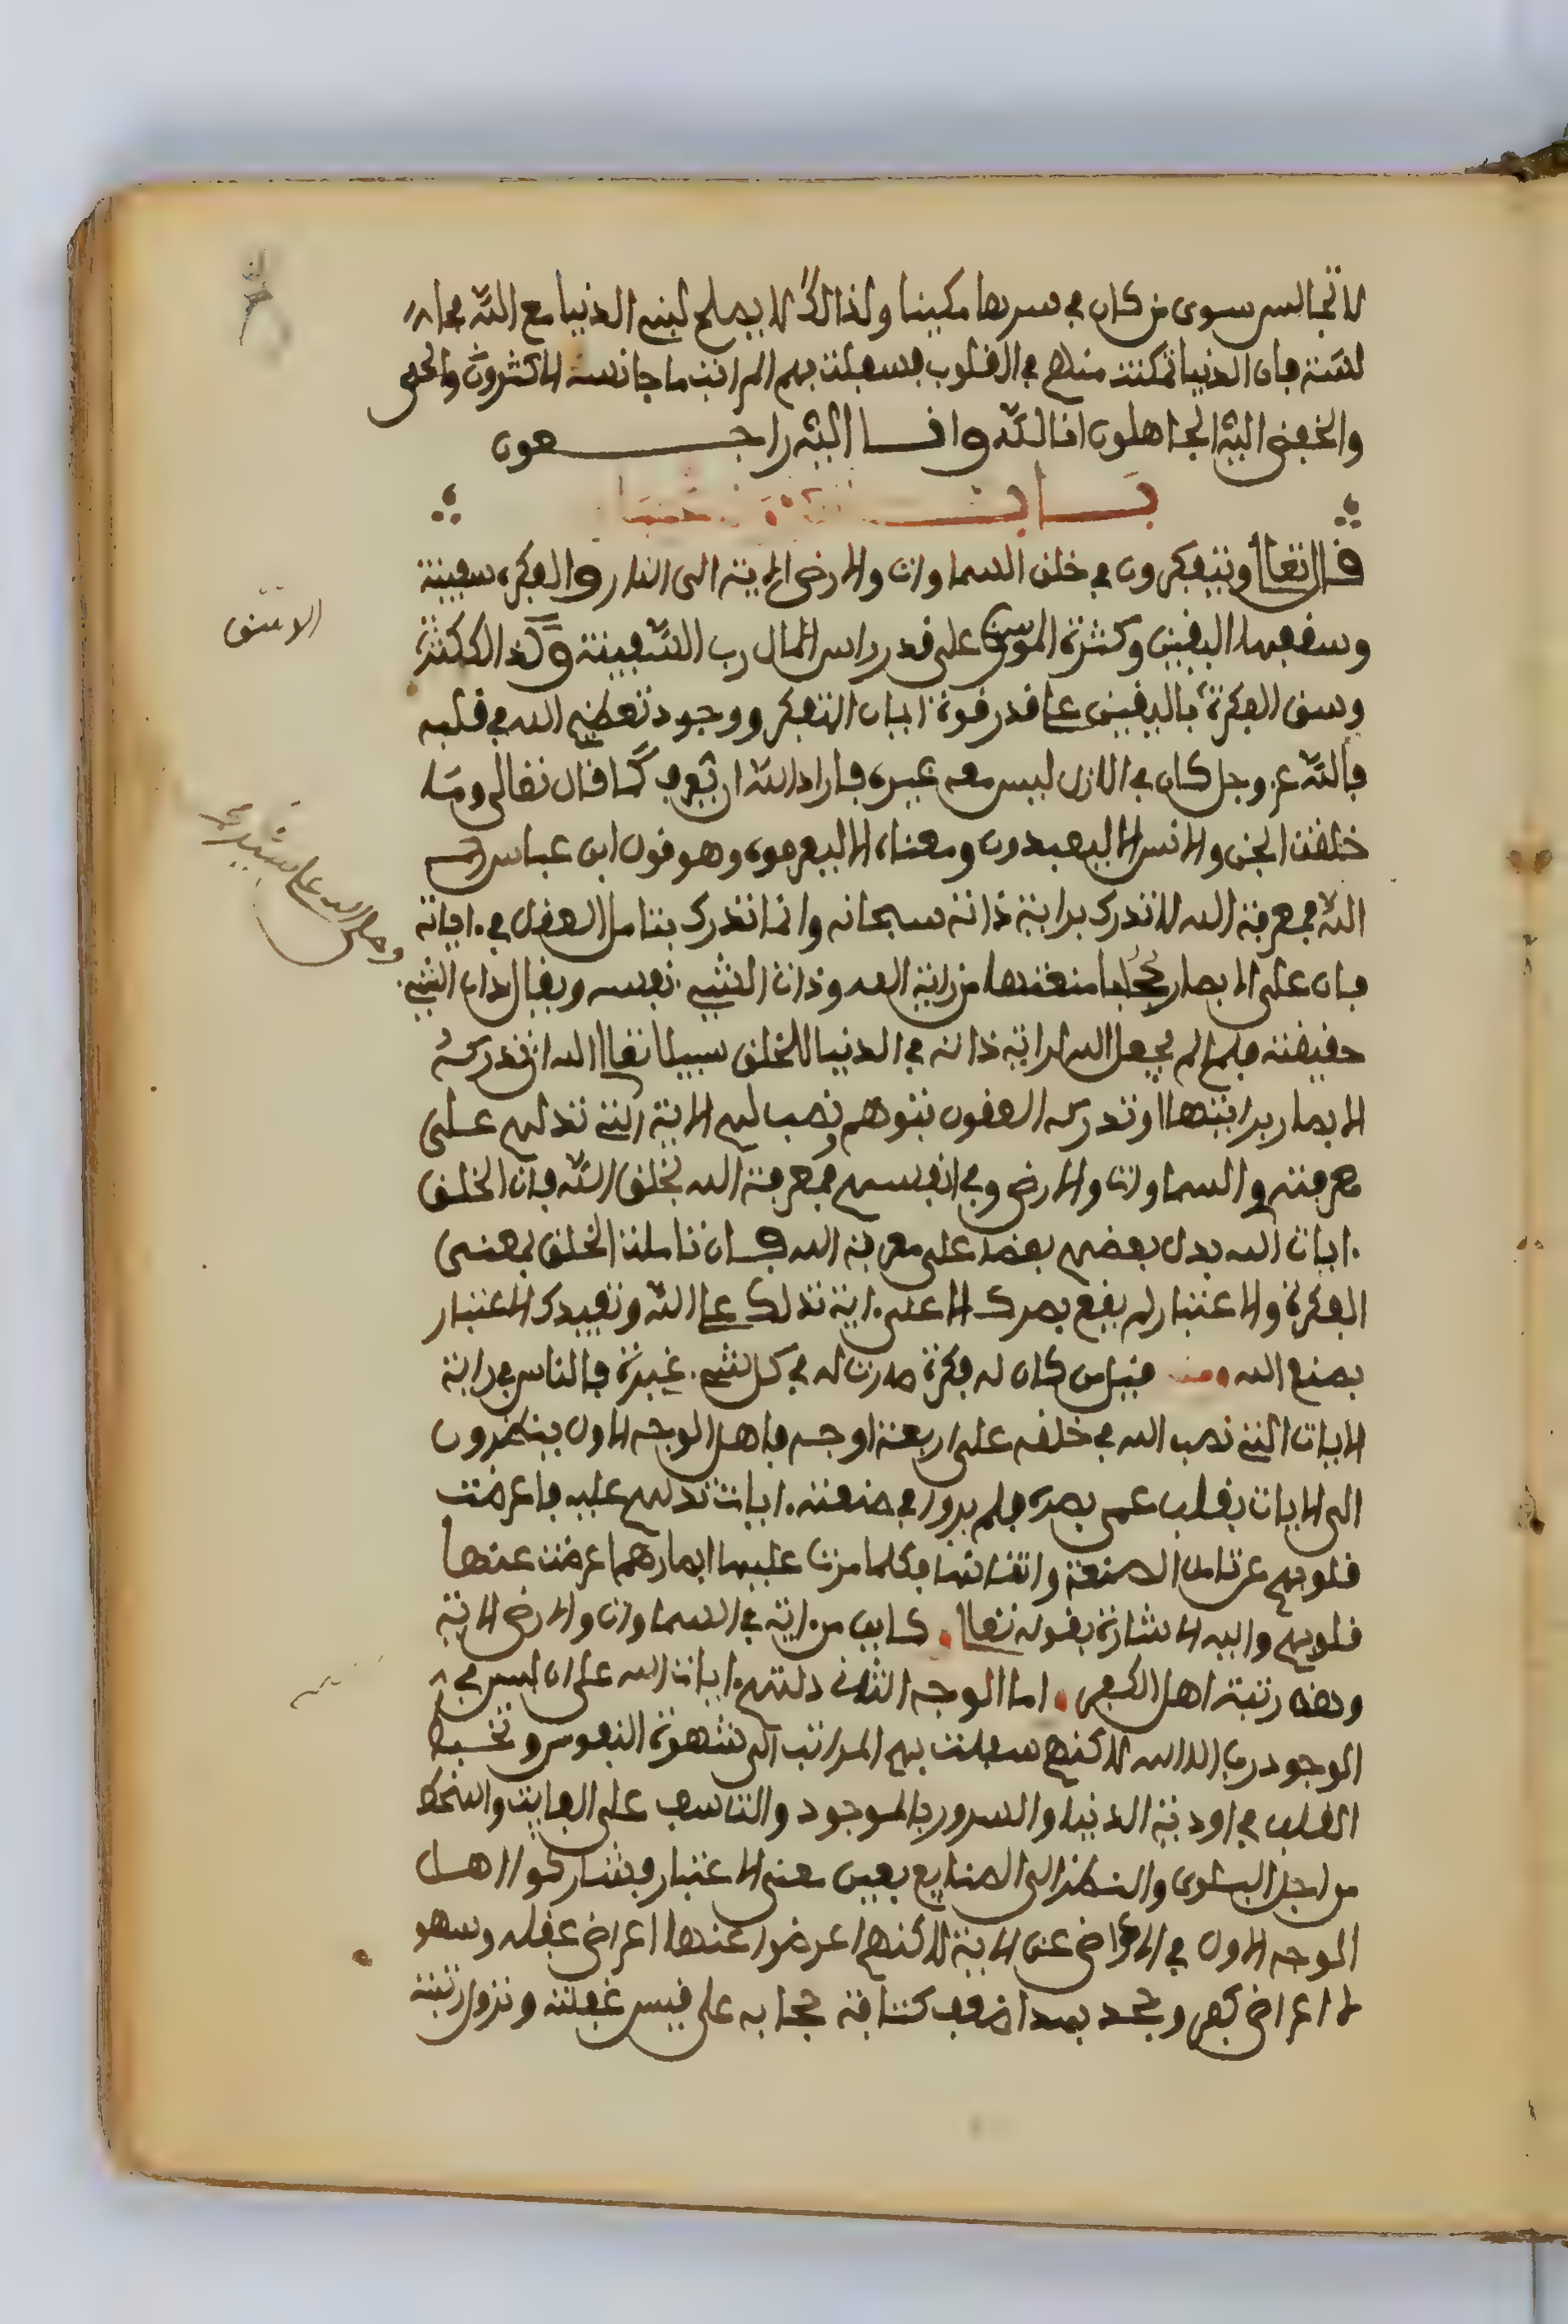 لا تجالس سوى من كان في سرها مكينا ولذالك لا يصلح لبني الدنيا مع الله مجا
لسة فان الدنيا تمكنت منهم في القلوب فسفلت بهم المراتب ما جانسه الاكثرون والحق
والخفى اليه الجاهلون انا لله وانا اليه راجعون
باب
قال تعالى ويتفكرون في خلق السماوات والارض الاية الى النار والفكرة سفينة
وسقفها اليقين وكثرة الموسق على قدر راس المال رب السفينة وكذالك كثرة
وسق الفكرة باليقين على قدر قوة ايمان المتفكر ووجود تعظيم الله في قلبه
فالله عز وجل كان في الازل ليس معه غيره فاراد الله ان يعرف كما قال تعالى وما
خلقت الجن والانس الا ليعبدون ومعناه الا ليعرفون وهو قول ابن عباس رضي
الله فمعرفة الله لا تدرك براية ذاته سبحانه وانما تدرك بتامل العقل في اياته
فان على الابصار حجابا منعها من راية الله وذات الشيء نفسه ويقال ذات الشيء
حقيقته فلما لم يجعل الله لراية ذاته في الدنيا للخلق سبيلا تعالى الله ان تدركه
الابصار برايتها او تدركه العقول بتوهم نصب لهم الاية التي تدلهم على
معرفته في السماوات والارض وفي انفسهم فمعرفة الله بخلق الله فان الخلق
ايات الله يدل بعضهم بعضا على معرفة الله فان تاملت الخلق بمعنى
الفكرة والاعتبار لم يقع بصرك الا على اية تدلك على الله وتفيدك الاعتبار
بصنع الله فمن كان له فكرة صارت له في كل شيء عبرة فالناس في راية
الايات التي نصب الله في خلقه على اربعة اوجه فاهل الوجه الاول ينظرون
الى الايات بقلب عمى بصره فلم يروا في صنعته ايات تدلهم عليه فاعرضت
قلوبهم عن تامل الصنعة واتقانها فكلما مرت عليها ابصارهم اعرضت عنها
قلوبهم واليه الاشارة بقوله تعالى كاين من اية في السماوات والارض الاية
وهذه رتبة اهل الكفر اما الوجه الثاني دلتهم ايات الله على ان ليس في
الوجود رب الا الله لاكنهم سفلت بهم المراتب الى شهوة النفوس وتخبط
القلب في اودية الدنيا والسرور بالموجود والتاسف على الفايت والسخط
من اجل البلوى والنظر الى الصنايع بغير معنى الاعتبار فشاركوا اهل
الوجه الاول في الاعراض عن الاية لاكنهم اعرضوا عنها اعراض غفلة وسهو
لا اعراض كفر وجحد فهذا ضعف كثافة حجابه على قيس غفلته ونزول رتبته
الاوسق
وصلى الله على سيدنا محمد